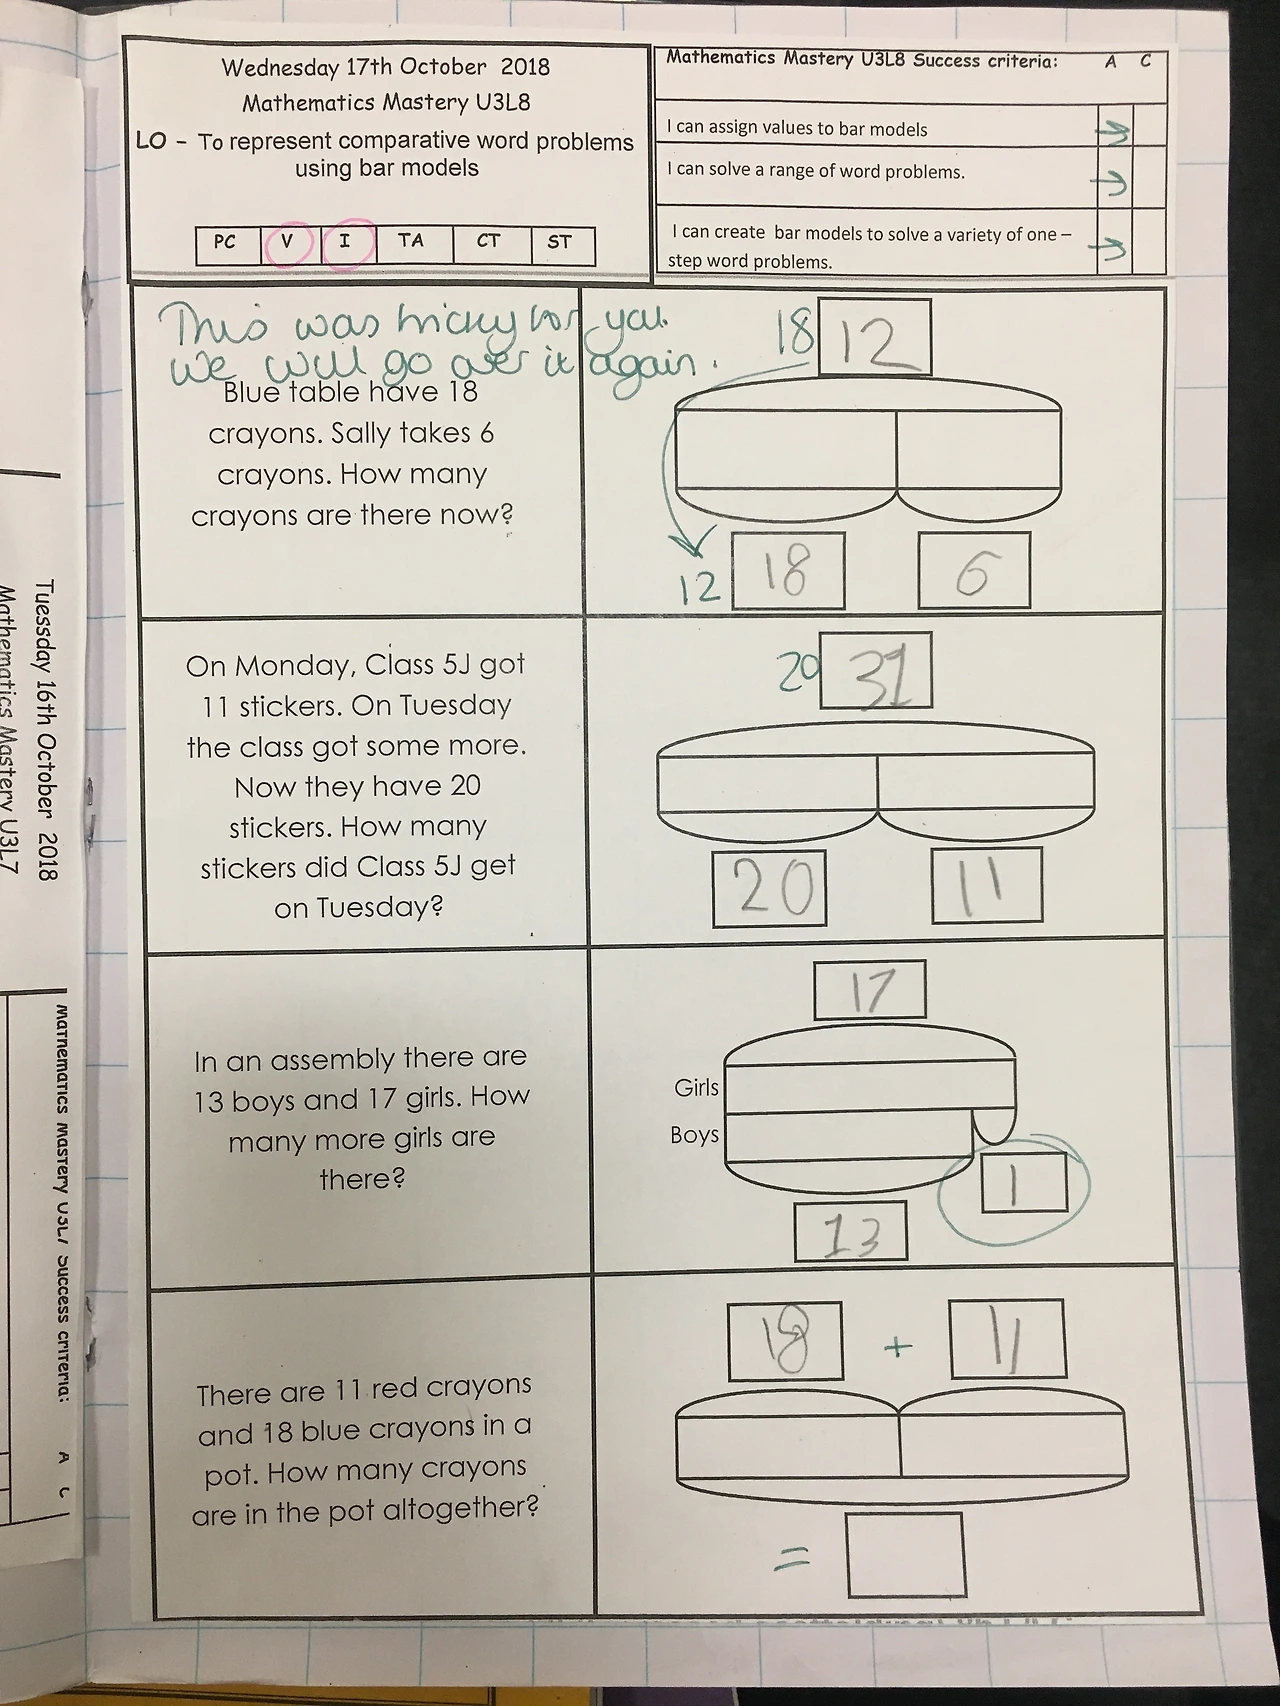 Wednesday 17th October 2018
Mathematics Mastery U3L8
LO - To represent comparative word problems
using bar models
PC V I TA CT ST
Mathematics Mastery U3L8 Success criteria: A C
I can assign values to bar models
I can solve a range of word problems.
I can create bar models to solve a variety of one –
step word problems.
This was tricky for you.
We will go over it again.
Blue table have 18
crayons. Sally takes 6
crayons. How many
crayons are there now?
18 12
12 18 6
On Monday, Class 5J got
11 stickers. On Tuesday
the class got some more.
Now they have 20
stickers. How many
stickers did Class 5J get
on Tuesday?
20 31
20 11
In an assembly there are
13 boys and 17 girls. How
many more girls are
there?
17
Girls
Boys
1
13
There are 11 red crayons
and 18 blue crayons in a
pot. How many crayons
are in the pot altogether?
18 + 11
=
Tuessday 16th October 2018
Mathematics Mastery U3L7
Mathematics Mastery U3L7 Success criteria: A C